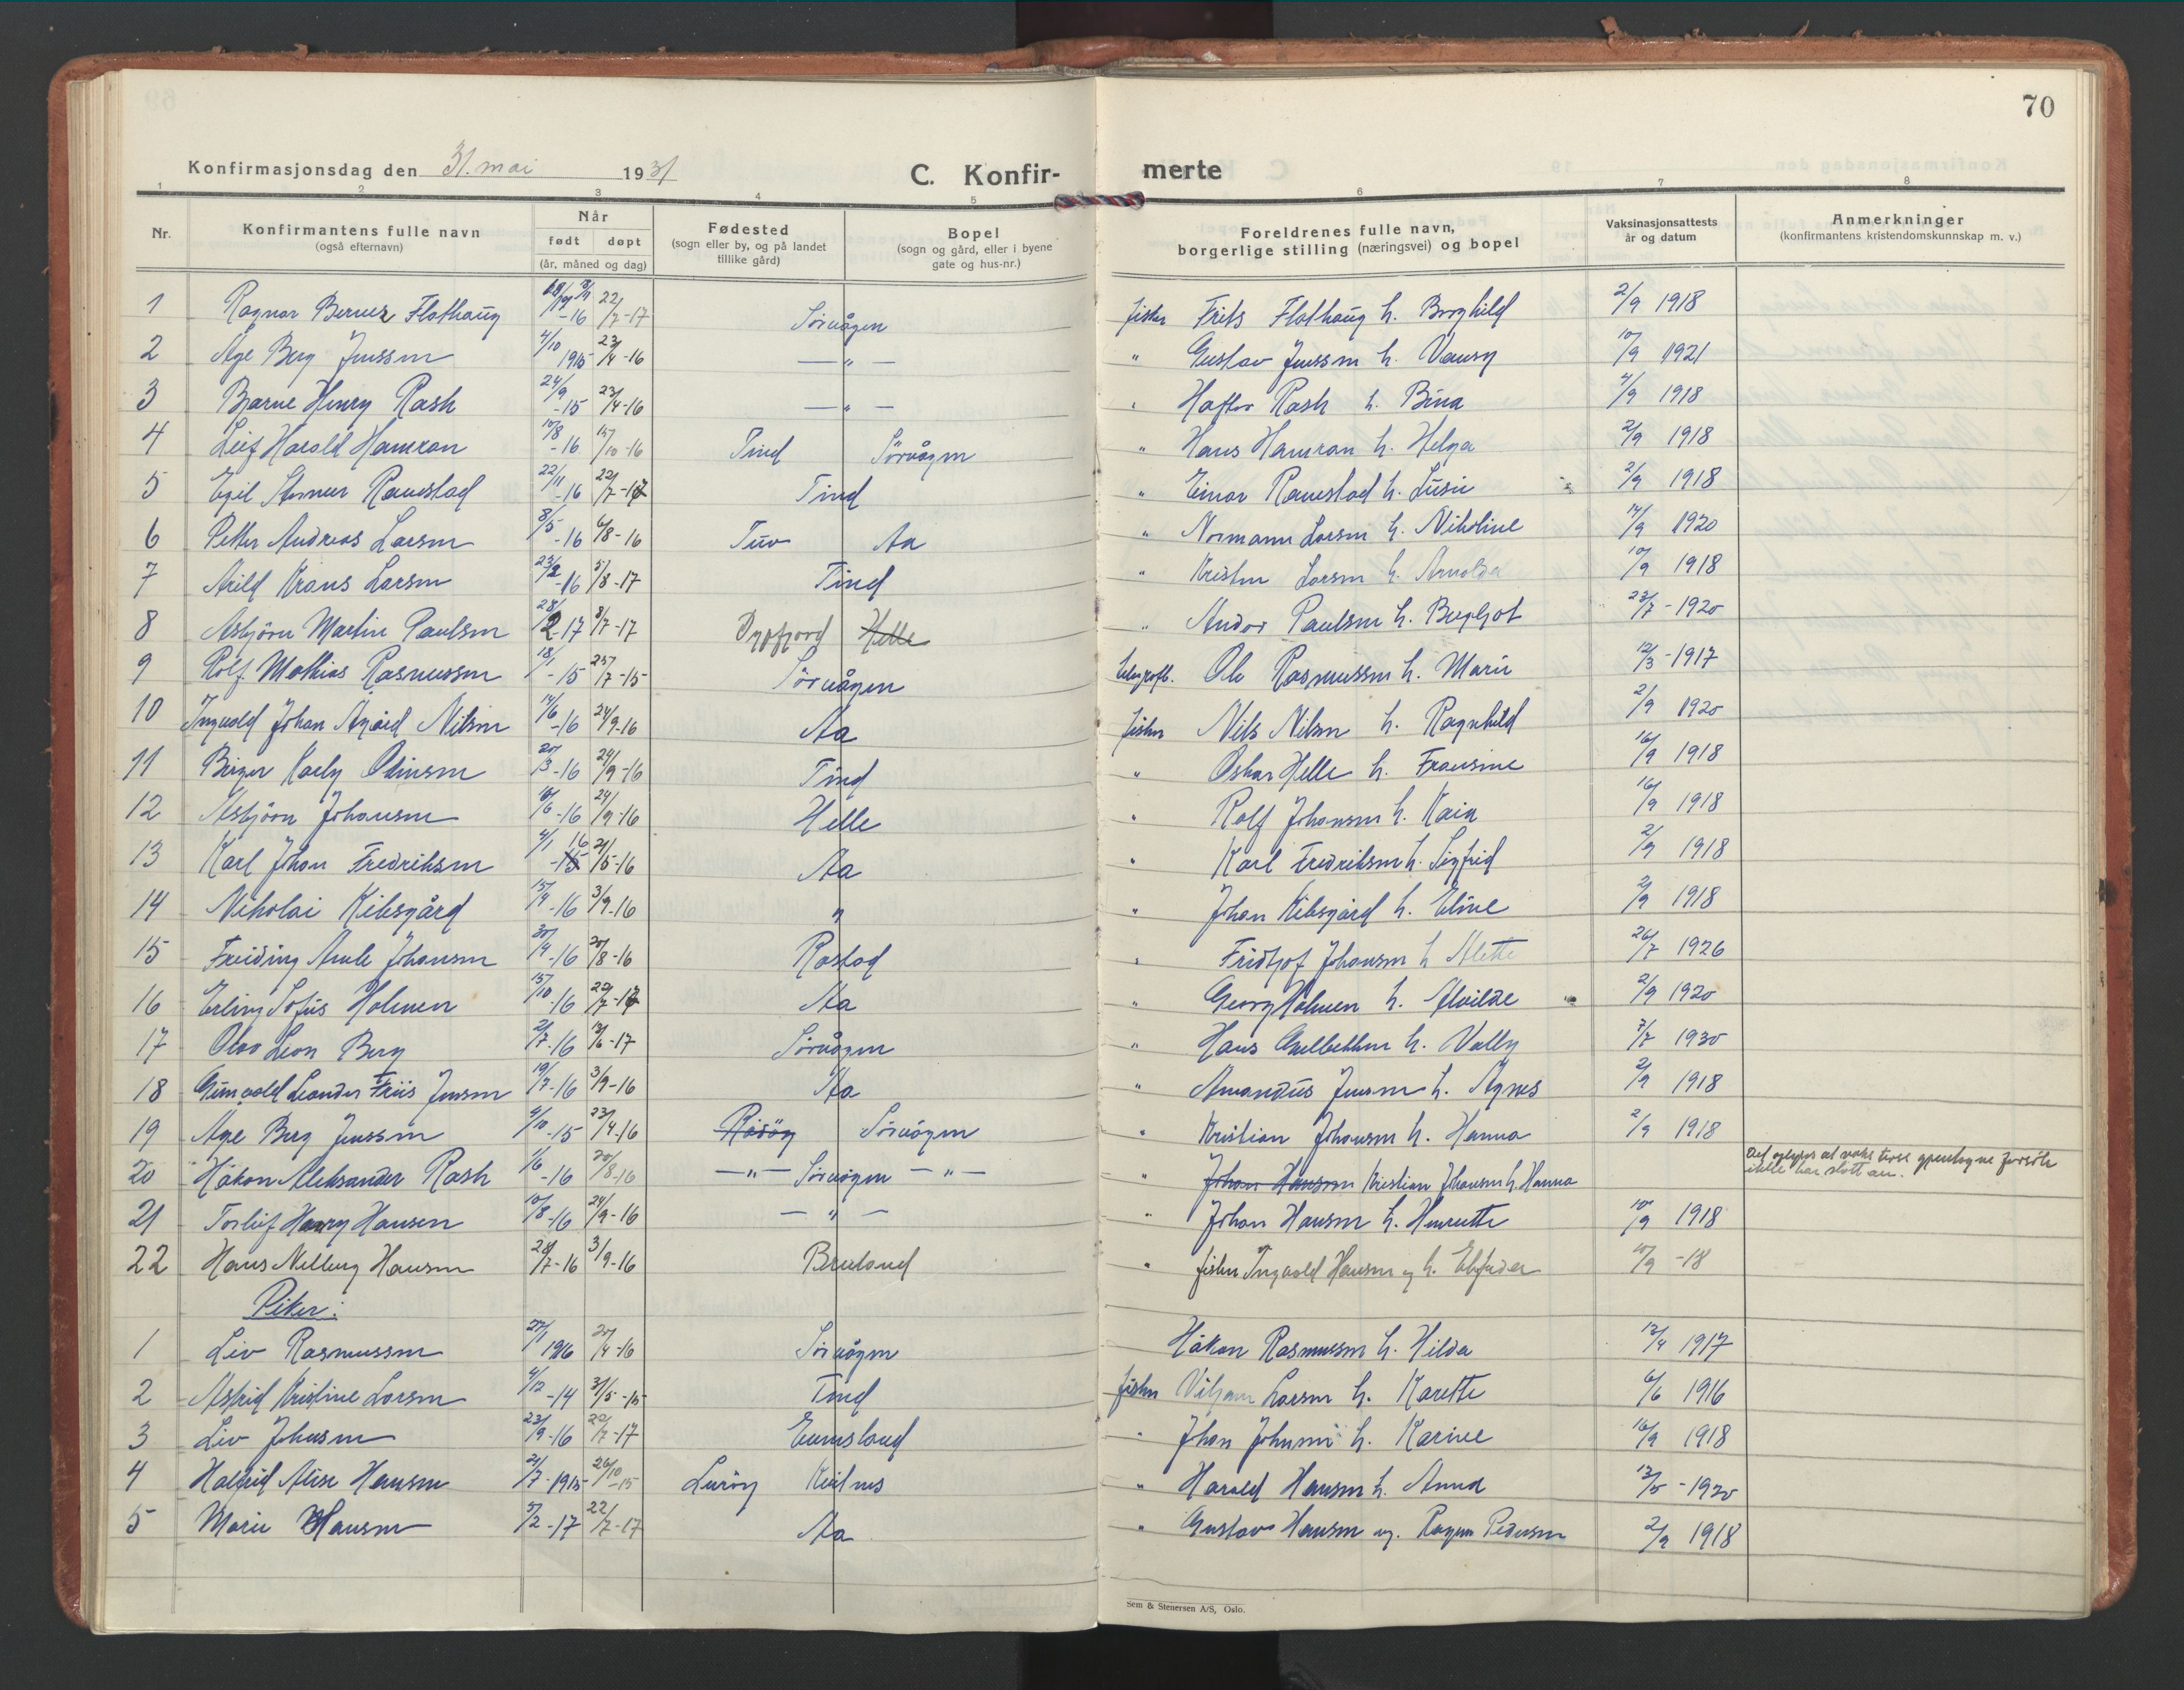 70
Konfirmasjonsdag den 31. mai 1931
C. Konfir- merte
1 2 3 4 5 6 7 8
Nr. Konfirmantens fulle navn (også efternavn) Når født døpt (år, måned og dag) Fødested (sogn eller by, og på landet tillike gård) Bopel (sogn og gård, eller i byene gate og hus-nr.) Foreldrenes fulle navn, borgerlige stilling (næringsvei) og bopel Vaksinasjonsattests år og datum Anmerkninger (konfirmantens kristendomskunnskap m. v.)
1 Ragnar Flathaug -16 22/7-17 Sørvågen fisker Frits Flathaug h. Borghild 2/9 1918
2 Åge Berg Jenssen 4/10 1915 23/4-16 — " — " Gustav Jenssen h. 10/9 1921
3 Bjarne Henry Rask 24/9 -15 23/4-16 — " — " Rask h. 4/9 1918
4 Leif Harald Hamran 10/8 -16 15/10-16 Tind Sørvågen " Hans Hamran h. Helga 2/9 1918
5 Egil Ramstad 22/11 -16 22/7-17 Tind " Einar Ramstad h. Lusie 2/9 1918
6 Petter Andreas Larsen 8/5 -16 6/8-16 Tuv Aa " Normann Larsen h. Nikoline 14/9 1920
7 Arild Larsen 23/2 -16 5/8-17 Tind " Kristen Larsen h. Arnolda 10/9 1918
8 Asbjørn Martin Paulsen 28/2-17 8/7-17 Dypfjord Helle " Andor Paulsen h. Bergljot 23/7-1920
9 Rolf Mathias Rasmussen 18/1 -15 25/7-15 Sørvågen telegrafb. Ole Rasmussen h. Marie 12/3-1917
10 Ingvald Johan Nilsen 14/6 -16 24/9-16 Aa fisker Nils Nilsen h. Ragnhild 2/9 1920
11 Birger Karly Olinsen 20/3-16 24/9-16 Tind " Oskar Helle h. Fransine 16/9 1918
12 Asbjørn Johansen 16/6-16 24/9-16 Helle " Rolf Johansen h. Kaia 16/9 1918
13 Karl Johan Fredriksen 4/1 16 -15 21/5-16 Aa " Karl Fredriksen h. Sigfrid 2/9 1918
14 Nikolai Kilsgård 15/4-16 3/9-16 " " Johan Kilsgård h. Eline 2/9 1918
15 Freiding Johansen 30/4-16 20/8-16 Rostad " Fridtjof Johansen h. Alette 26/7 1926
16 Erling Sofus Holmen 15/10-16 22/7-17 Aa " Georg Holmen h. Alvilde 2/9 1920
17 Olav Leon Berg 2/7-16 13/6-17 Sørvågen " Hans h. Vally 7/7 1930
18 Gunvald Leander Friis Jensen 19/7-16 3/9-16 Aa " Amandus Jensen h. Agnes 2/9 1918
19 Åge Berg Jenssen 4/10-15 23/4-16 Råsøy Sørvågen " Kristian Johansen h. Hanna 2/9 1918
20 Håkon Aleksander Rask 1/6 -16 20/8-16 — " — Sørvågen — " — " Johan Hansen Kristian Johansen h. Hanna Det oplyses at
ikke har slått an.
21 Torleif Henry Hansen 10/8-16 24/9-16 — " — " Johan Hansen h. Henriette 10/9 1918
22 Hans Hansen 28/7-16 3/9-16 " fisker Ingvald Hansen og h. 10/9 -18
Piker:
1 Liv Rasmussen 27/1 1916 20/4-16 Sørvågen Håkon Rasmussen h. Hilda 13/4 1917
2 Astrid Kristine Larsen 4/12 -14 31/5-15 Tind fisker Larsen h. Karette 6/6 1916
3 Liv Johnsen 23/9-16 22/7-17 " Johan h. Karine 16/9 1918
4 Halfrid Alise Hansen 21/7-1915 26/10-15 Lurøy Reines " Harald Hansen h. Anna 13/5-1920
5 Marie Hansen 5/2-17 22/7-17 Aa " Gustav Hansen og Pedersen 2/9 1918
Sem & Stenersen A/S, Oslo.